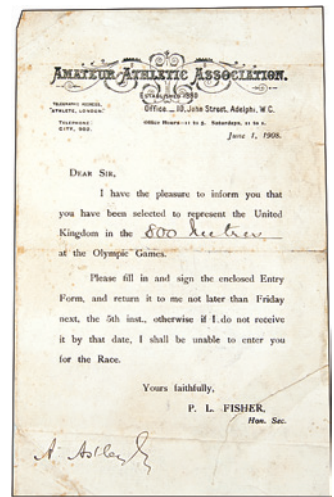 AMATEUR ATHLETIC ASSOCIATION.
ESTABLISHED 1880
TELEGRAPHIC ADDRESS,
"ATHLETE, LONDON."
TELEPHONE:
CITY, 902.
Office _ 10, John Street, Adelphi, W.C.
Office Hours—11 to 5. Saturdays, 11 to 2.
June 1, 1908.
DEAR SIR,
I have the pleasure to inform you that
you have been selected to represent the United
Kingdom in the 800 metres
at the Olympic Games.
Please fill in and sign the enclosed Entry
Form, and return it to me not later than Friday
next, the 5th inst., otherwise if I do not receive
it by that date, I shall be unable to enter you
for the Race.
Yours faithfully,
P. L. FISHER,
Hon. Sec.
A. Astley